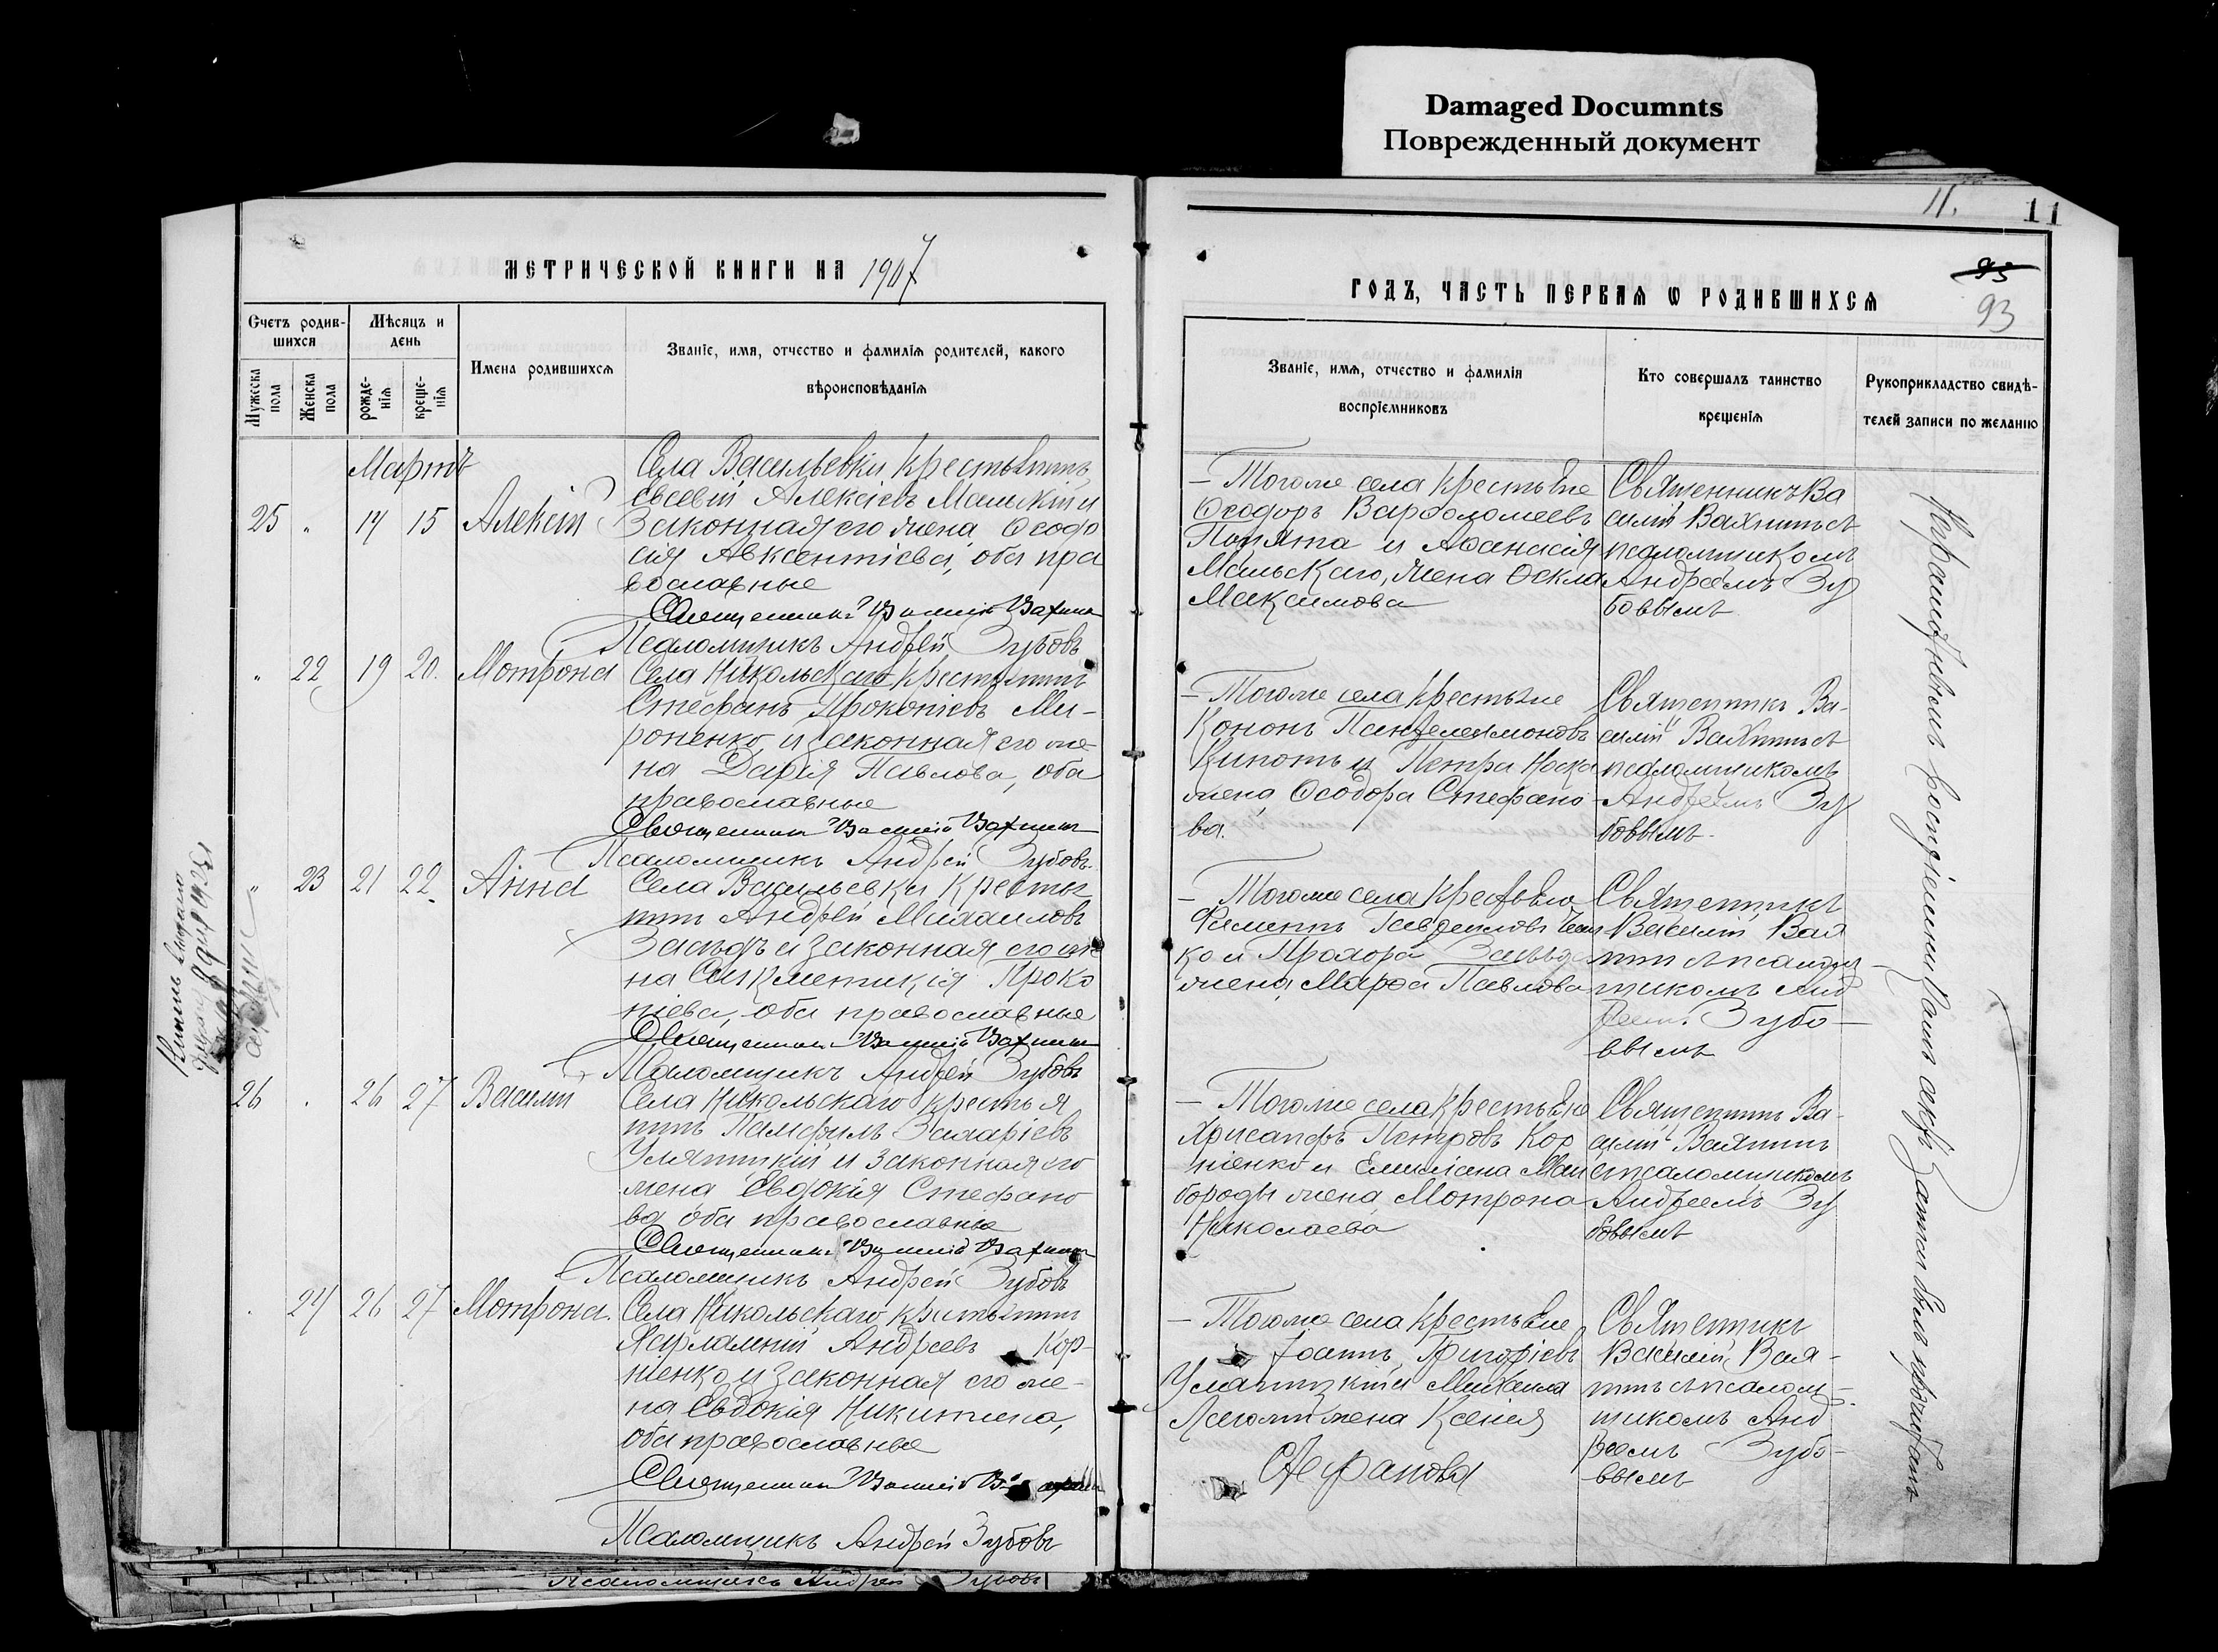 Damaged Documnts
Поврежденный документ
11.
11
МЕТРИЧЕСКОЙ КНИГИ НА 1907
ГОДЪ, ЧАСТЬ ПЕРВАѦ Ѡ РОДИВШИХСѦ
95
93
Счетъ родив-
шихся
Мѣсяцъ и
день
Мужеска
пола
Женска
пола
рожде-
нія
креще-
нія
Имена родившихсѧ
Званіе, имя, отчество и фамиліѧ родителей, какого
вѣроисповѣданіѧ
Званіе, имѧ, отчество и фамилія
воспріемниковъ
Кто совершалъ таинство
крещеніѧ
Рукоприкладство свидѣ-
телей записи по желанію
Мартъ
25 " 14 15 Алексій
Села Васильевки крестьянинъ
Евсевій Алексіевъ Мальскій и
Законная его жена Ѳеодо
сія Авксентіева, оба пра
вославные
Священникъ Василій Вахнинъ
Псаломщикъ Андрей Зубовъ
— Тогоже села крестьяне
Ѳеодоръ Варѳоломеевъ
и Аѳанасія
Мальскаго, жена Ѳекла
Максимова
Священникъ Ва
силій Вахнинъ съ
псаломщикомъ
Андреемъ Зу
бовымъ
" 22 19 20. Мотрона
Села Никольскаго крестьянинъ
Стефанъ Прокопіевъ Ми-
роненко и законная его же-
на Дарія Павлова, оба
православные
Священникъ Василій Вахнинъ
Псаломщикъ Андрей Зубовъ
— Тогоже села крестьяне
Кононъ Пантелеимоновъ
и Петра
жена Ѳеодора Стефано-
ва.
Священникъ Ва-
силій Вахнинъ съ
псаломщикомъ
Андреемъ Зу
бовымъ.
" 23 21 22. Анна
Села Васильевки крестья
нинъ Андрей Михаиловъ
и законная его же
на Синклетикія Проко
піева, оба православные
Священникъ Василій Вахнинъ
Псаломщикъ Андрей Зубовъ
— Тогоже села крестьяне
Гавриловъ
ко и Прохора
жена Марѳа Павлова
Священникъ
Василій Вах
нинъ съ псалом-
щикомъ Анд
реемъ Зубо-
вымъ
26 . 26 27 Василій
Села Никольскаго крестья
нинъ Памфилъ Захаріевъ
и законная его
жена Евдокія Стефано
ва оба православные
Священникъ Василій Вахнинъ
Псаломщикъ Андрей Зубовъ
— Тогоже села крестьяне
Хрисанфъ Петровъ Кор
ніенко и Емиліана Май
бороды жена Мотрона
Николаева
Священникъ Ва-
силій Вахнинъ
съ псаломщикомъ
Андреемъ Зу
бовымъ
. 24 26 27 Мотрона.
Села Никольскаго крестьянинъ
Харлампій Андреевъ Кор-
ніенко и законная его же-
на Евдокія Никитина,
оба православные
Священникъ Василій
Псаломщикъ Андрей Зубовъ
— Тогоже села крестьяне
Іоаннъ Григоріевъ
и Михаила
жена Ксенія
Стефанова
Священникъ
Василій Вах-
нинъ съ псалом-
щикомъ Анд
реемъ Зубо-
вымъ
Псаломщикъ Андрей Зубовъ